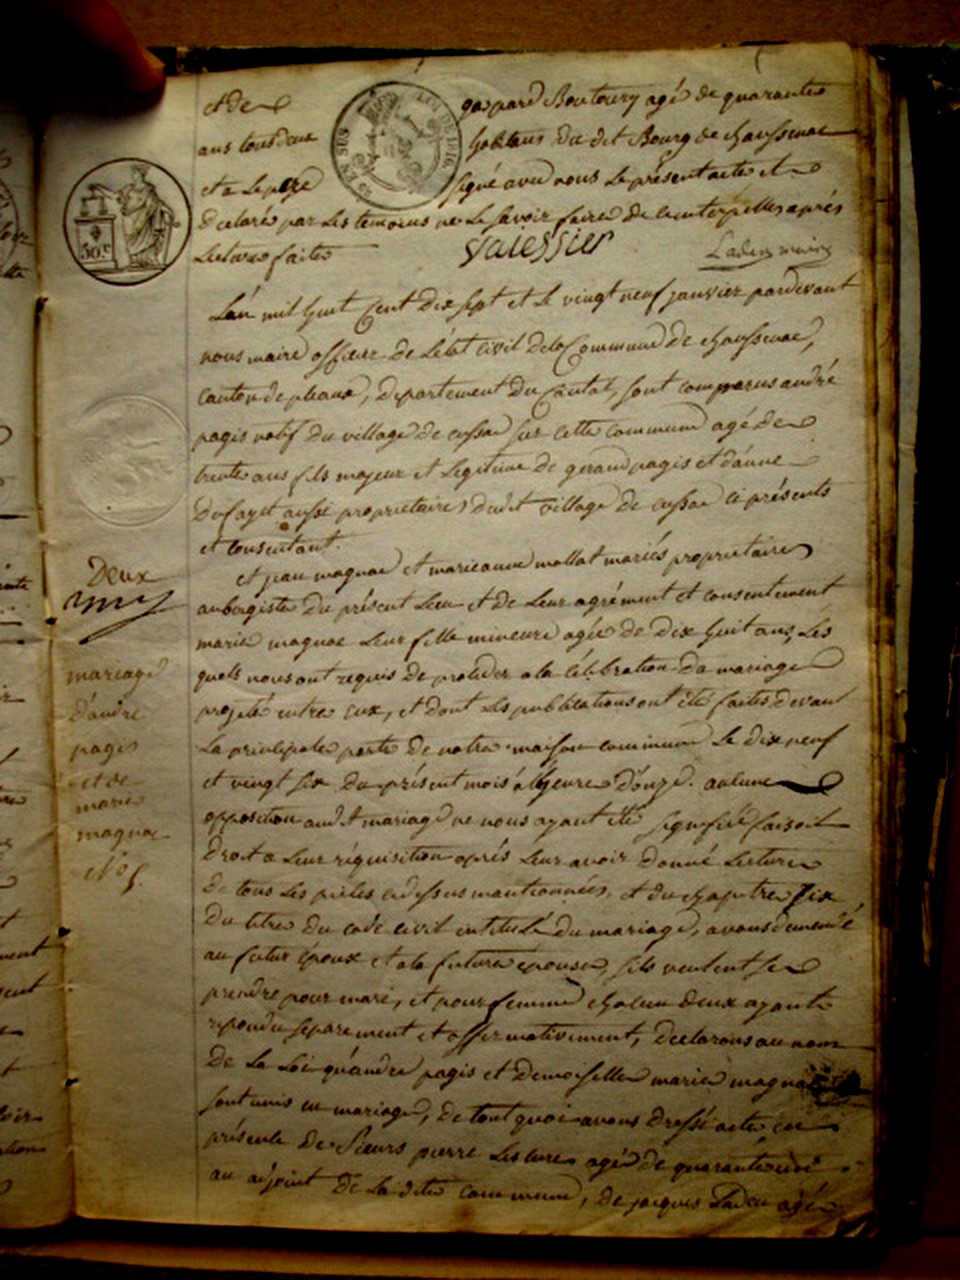 et de gaspard Boutoury agé de quarante
ans tous deux habitans du dit Bourg de chaussenac
et a Le pere signé avec nous Le présent acte et
declaré par Les temoins ne Le savoir faire de ce interpellés après
Lecture faite
vaissier
Ladeu maire
L'an mil huit Cent dix sept et Le vingt neuf janvier pardevant
nous maire officier de L'état civil de la Commune de chaussenac,
canton de pleaux, departement du Cantal, sont comparus andré
pagis natif du village de cussac sur cette commune agé de
trente ans fils majeur et Legitime de gerand pagis et d'anne
Dufayet aussi proprietaires dudit village de cussac ci présents
et consentant.
et jean magnac et marieanne mallat mariés proprietaires
aubergiste du présent Lieu et de Leur agrément et consentement
marie magnac Leur fille mineure agée de dix huit ans, Les
quels nous ont requis de proceder a la célébration du mariage
projeté entre eux, et dont Les publications ont été faites devant
La principale porte de notre maison commune Le dix neuf
et vingt six du présent mois a l'heure d'onze. aucune
opposition audit mariage ne nous ayant été signifiée faisoit
Droit a Leur réquisition après Leur avoir donné Lecture
de tous Les pieces cidessus mentionnées, et du chapitre six
Du titre du code civil intitulé du mariage, avons demandé
au futur époux et a la future epouse, s'ils veulent se
prendre pour mari, et pour femme chacun deux ayant
repondu séparement et affirmativement, declarons au nom
De La Loi qu'andré pagis et Demoiselle marie magnac
sont unis en mariage, de tout quoi avons dressé acte en
présence de Sieurs pierre Lescure agé de quarante
au adjoint de La dite commune, de jacques Ladeu agé
Deux
mariage
d'andre
pagis
et de
marie
magnac
30 c.
LOI DE 1816
EN SUS